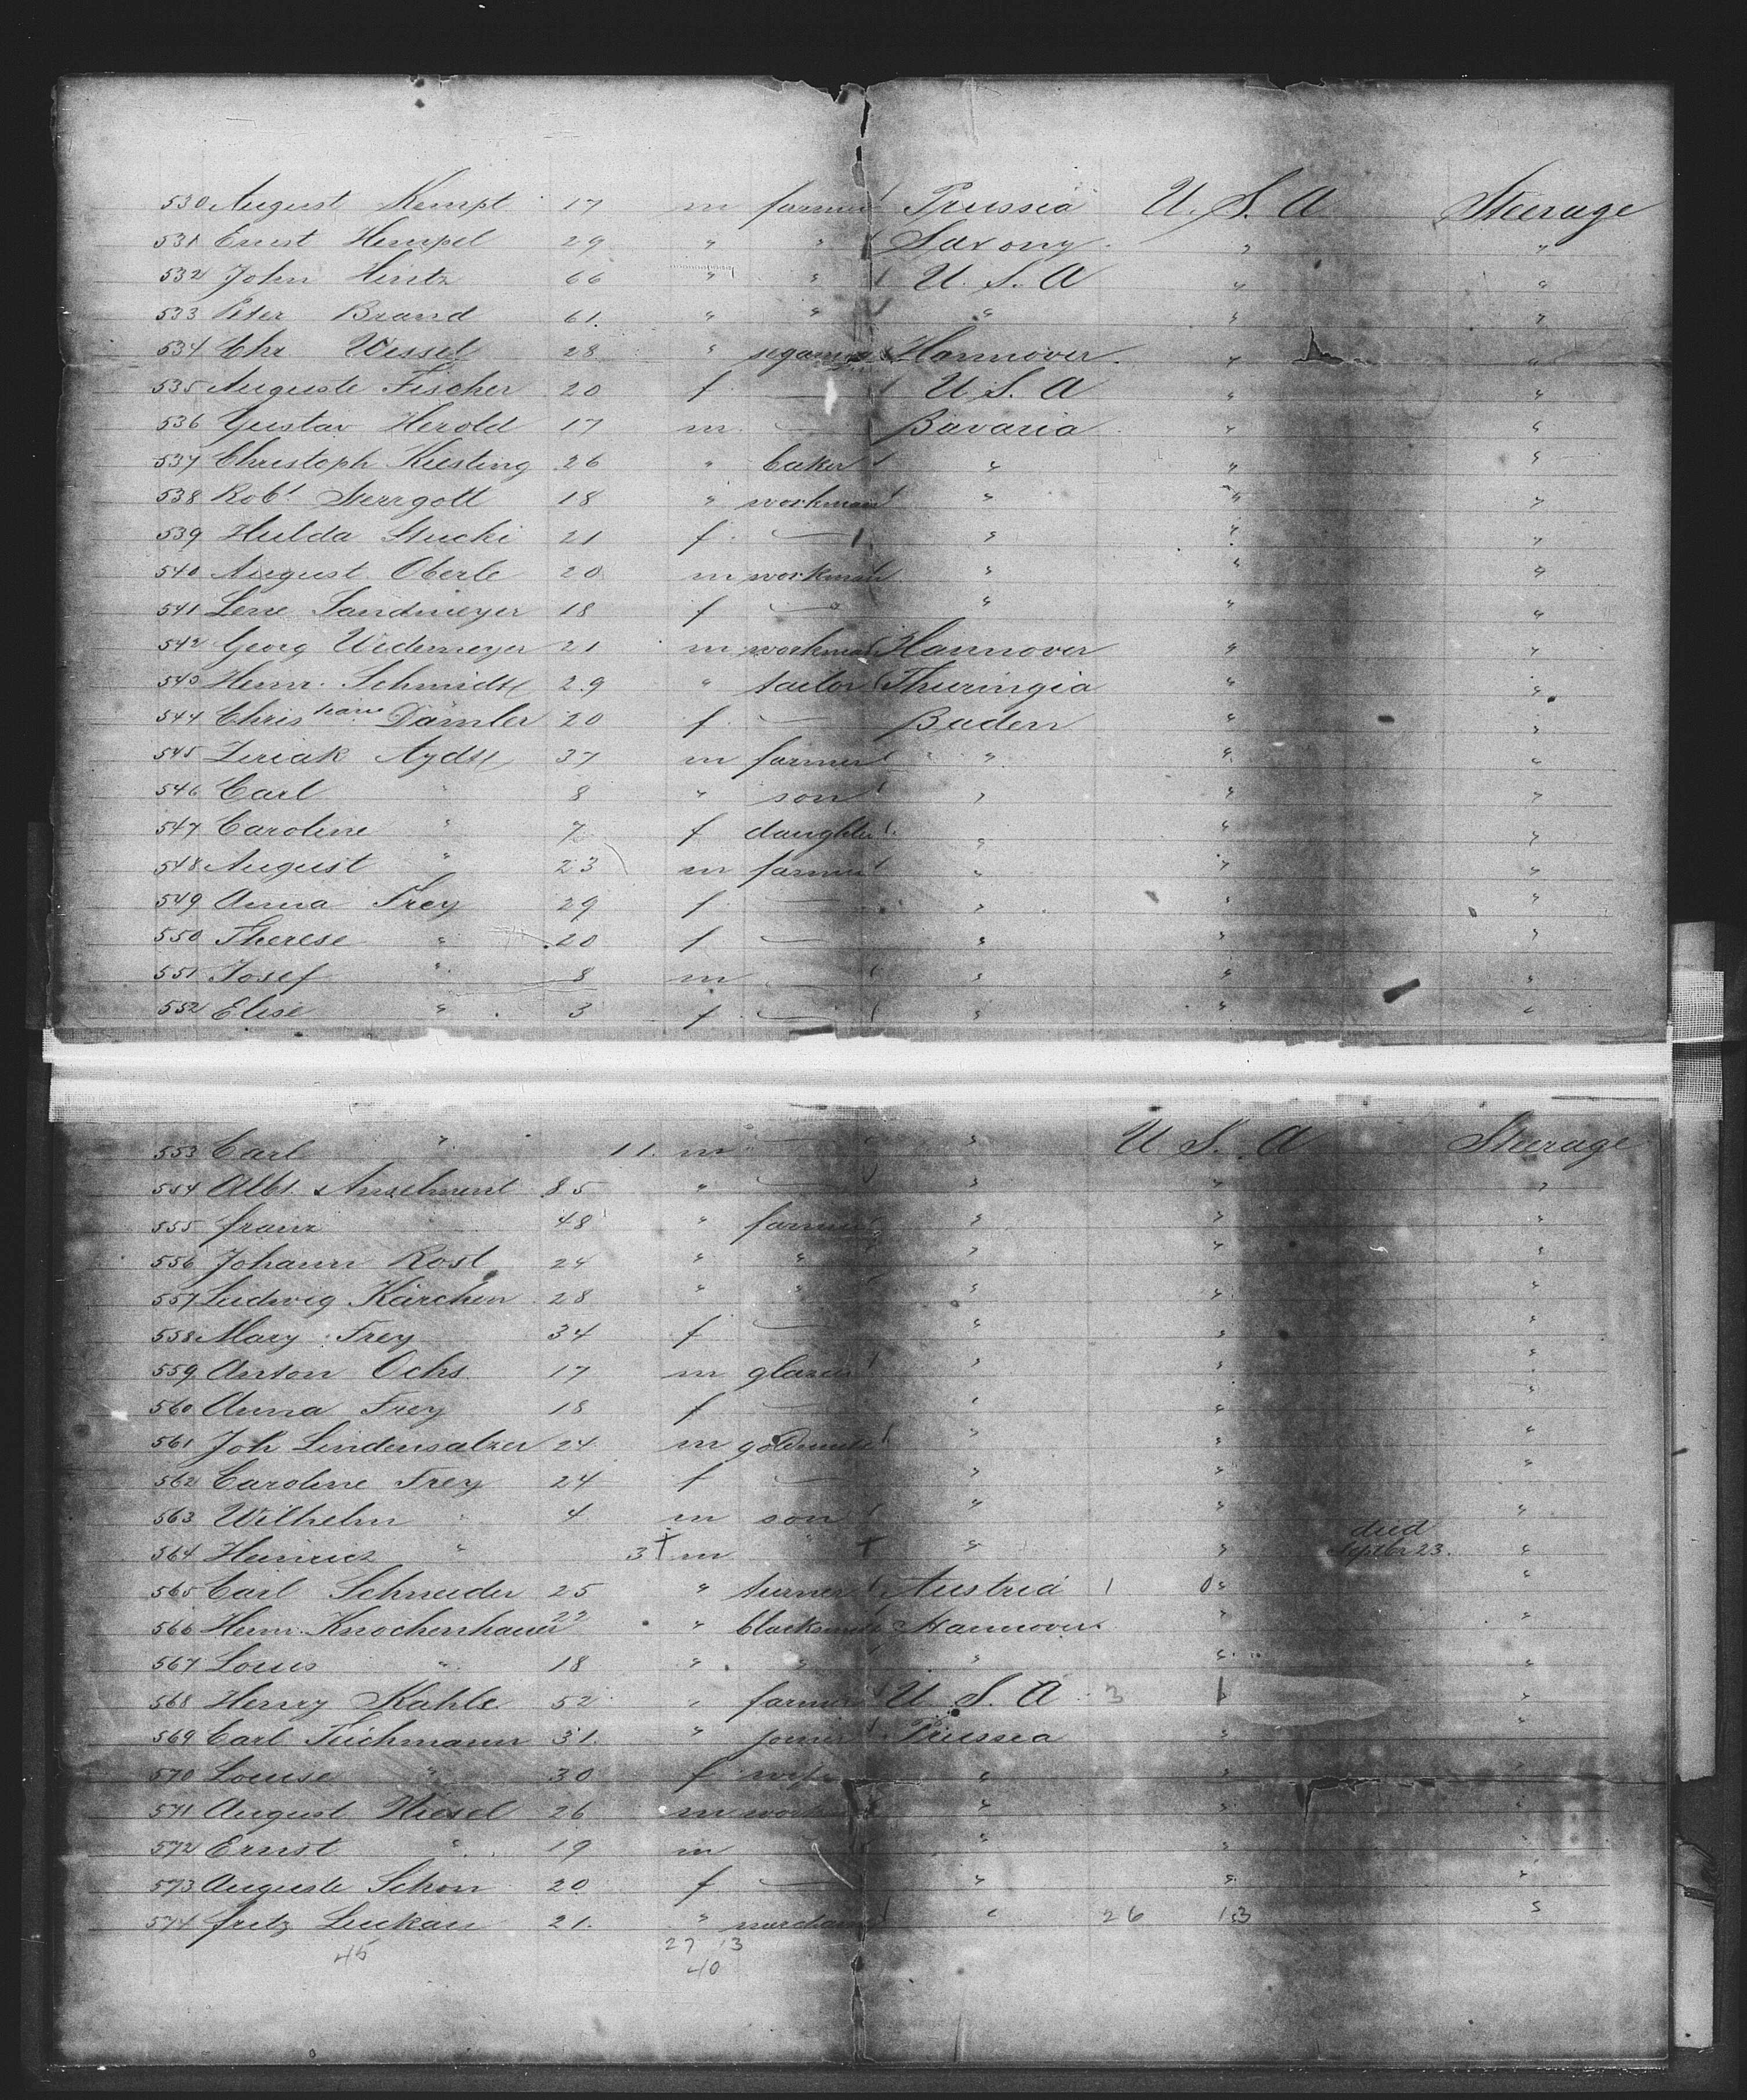 530 August Kempt 17 m farmer Prussia U. S. A Steerage
531 Ernst Hempel 29 " " Saxony " "
532 John Hintz 66 " " U. S. A " "
533 Peter Brand 61. " " " " "
534 Chr Wessel 28 " Hannover " "
535 Auguste Fischer 20 f — U. S. A " "
536 Gustav Herold 17 m — Bavaria " "
537 Christoph Kiesting 26 " baker " " "
538 Robt Herrgott 18 " workman " " "
539 Hulda Stucki 21 f — " " "
540 August Oberle 20 m workman " " "
541 Lene Sandmeyer 18 f — " " "
542 Georg Widemeyer 21 m workman Hannover " "
543 Henr. Schmidt 29 " tailor Thuringia " "
544 Christiane Dämler 20 f — Baden " "
545 Aydt 37 m farmer " " "
546 Carl " 8 " son " " "
547 Caroline " 7 f daughter " " "
548 August " 23 m farmer " " "
549 Anna Frey 29 f — " " "
550 Therese " 20 f — " " "
551 Josef " 8 m — " " "
552 Elise " 3 f — " " "
553 Carl " 11. m — " U. S. A Steerage
554 Albt. Anselment 85 " — " " "
555 Franz 48 " farmer " " "
556 Johann Rost 24 " " " " "
557 Ludwig Kärchen 28 " " " " "
558 Mary Frey 34 f — " " "
559 Anton Ochs 17 m glazier " " "
560 Anna Frey 18 f — " " "
561 Joh Lindensalzer 24 m goldsmith " " "
562 Caroline Frey 24 f — " " "
563 Wilhelm " 4 m son " " "
564 " 3 † m " † " " died Septbr 23. "
565 Carl Schneider 25 " turner Austria 1 0 " "
566 Henr. Knochenhauer 22 " blacksmith Hannover " "
567 Louis " 18 " " " " "
568 Henry Kahle 52 " farmer U. S. A 3 1 " "
569 Carl Teichmann 31. " joiner Prussia " "
570 Louise " 30 f wife " " "
571 August Hiesel 26 m workman " " "
572 Ernst " 19 m " " "
573 Auguste Schon 20 f — " " "
574 Fritz Luckau 21. " merchant " 26 13 "
45 27 13
40